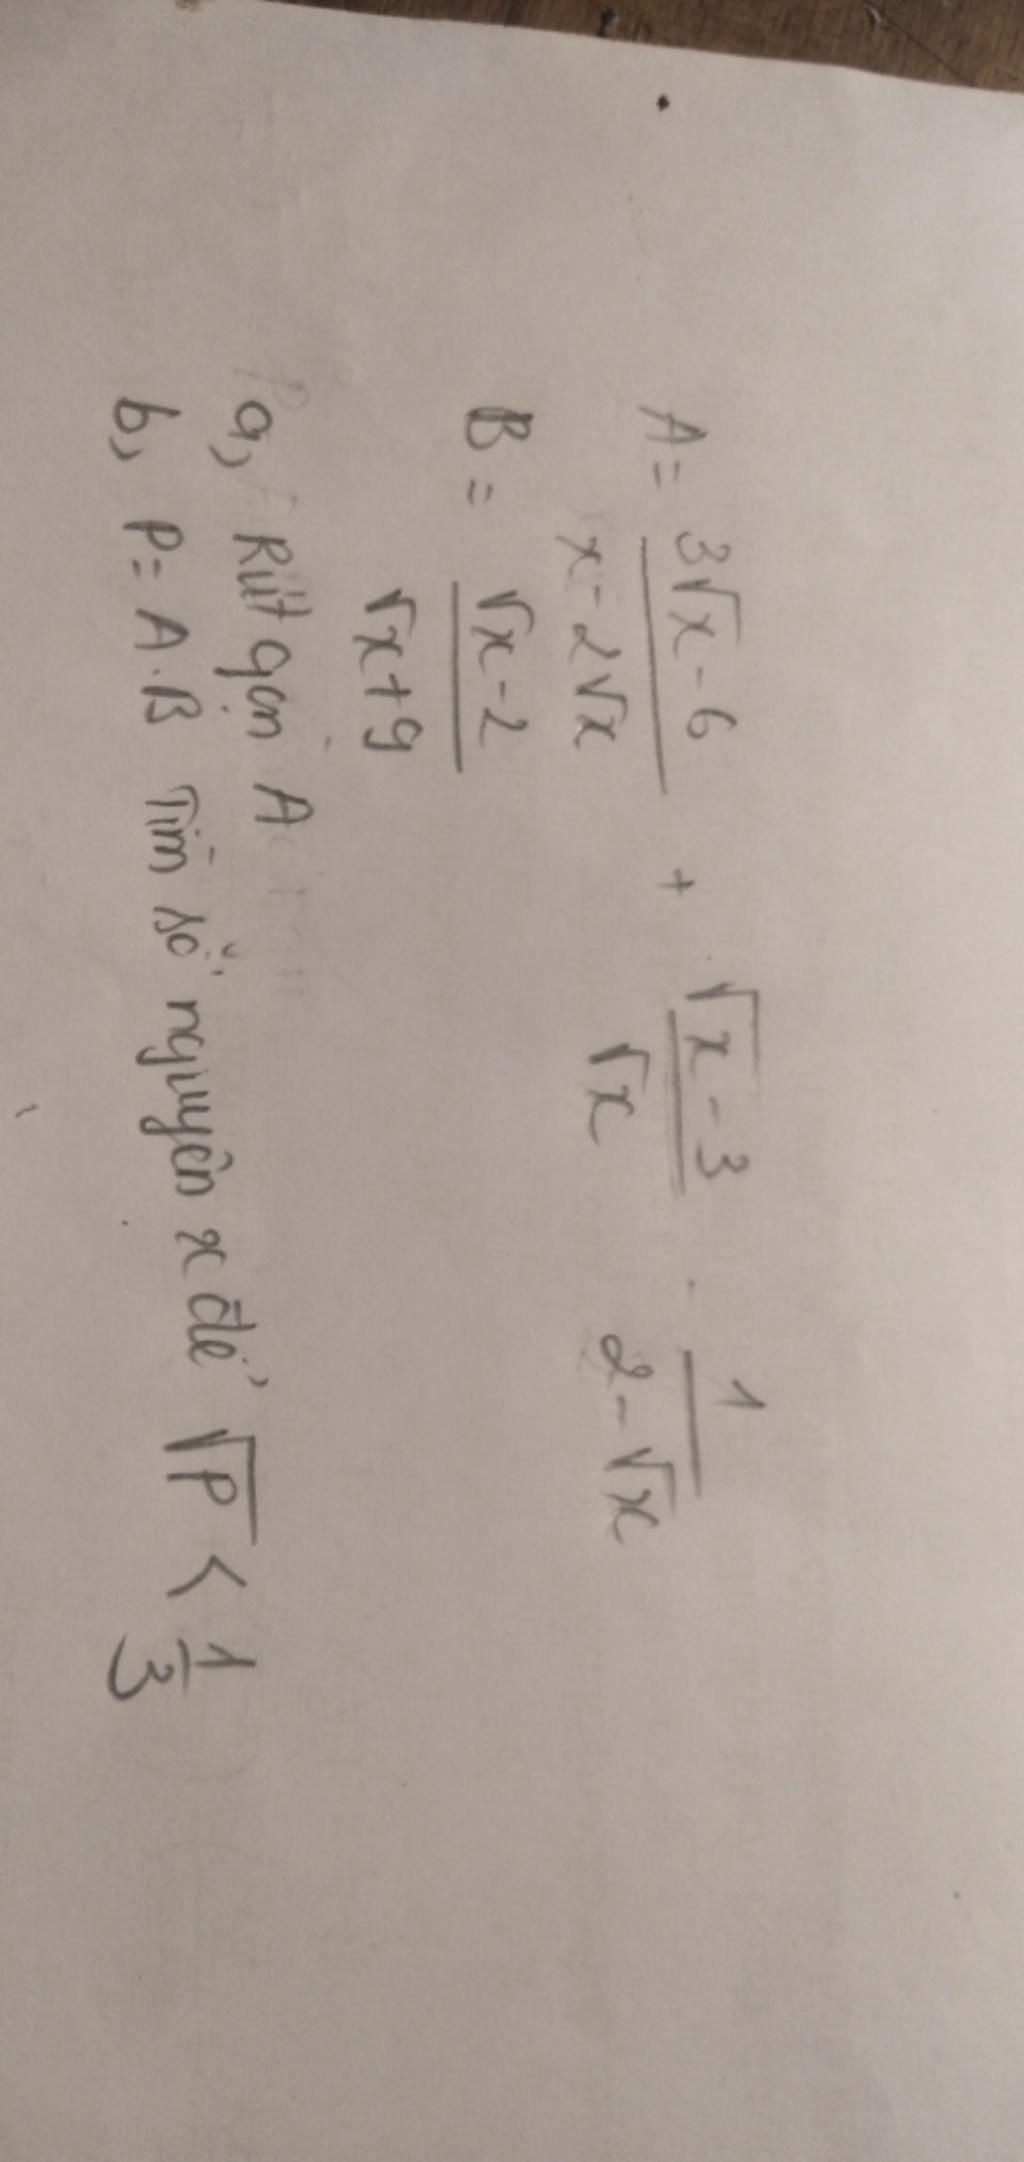 A = (3√x - 6)/(x - 2√x) + (√x - 3)/√x - 1/(2 - √x)
B = (√x - 2)/(√x + 9)
a, Rút gọn A
b, P = A.B Tìm số nguyên x để √P < 1/3